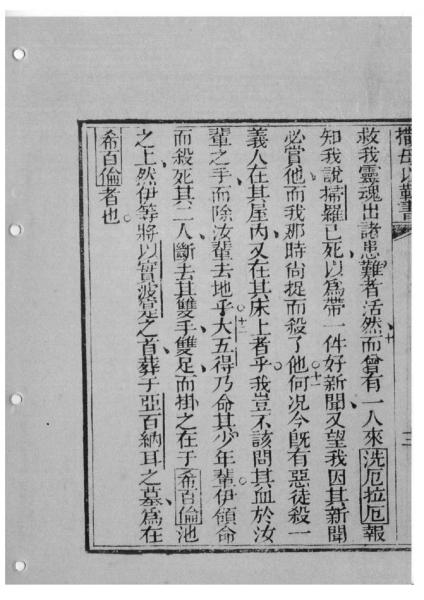 撒母以勒書 三
救我靈魂出諸患難者活、十然而曾有一人來洗厄拉厄報
知我說掃羅已死、以爲帶一件好新聞、又望我因其新聞
必賞他、而我那時尚捉而殺了他。十一何况今旣有惡徒殺一
義人在其屋內、又在其床上者乎。我豈不該問其血於汝
輩之手、而除汝輩去地乎。十二大五得乃命其少年輩。伊領命
而殺死其二人、斷去其雙手、雙足、而掛之在于希百倫池
之上、然伊等將以實波之首葬于亞百納耳之墓、爲在
希百倫者也。